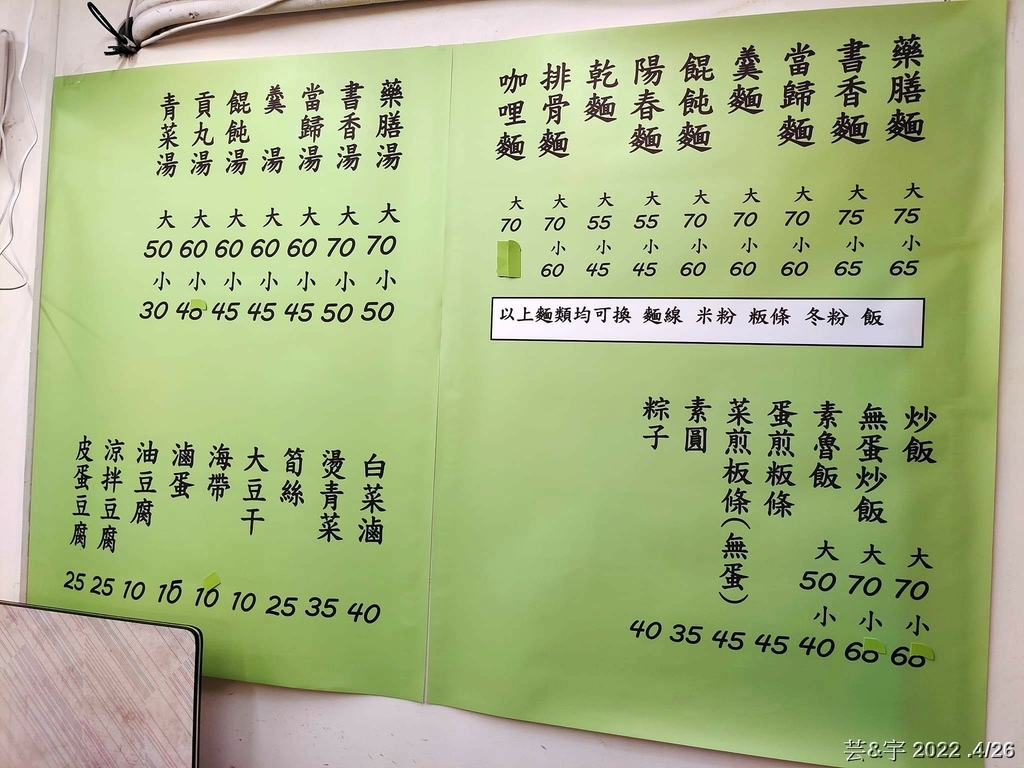 藥膳麵 大 75 小 65
書香麵 大 75 小 65
當歸麵 大 70 小 60
羹麵 大 70 小 60
餛飩麵 大 70 小 60
陽春麵 大 55 小 45
乾麵 大 55 小 45
排骨麵 大 70 小 60
咖哩麵 大 70
以上麵類均可換 麵線 米粉 粄條 冬粉 飯
炒飯 大 70 小 60
無蛋炒飯 大 70 小 60
素魯飯 大 50 小 40
蛋煎粄條 45
菜煎板條(無蛋) 45
素圓 35
粽子 40
藥膳湯 大 70 小 50
書香湯 大 70 小 50
當歸湯 大 60 小 45
羹湯 大 60 小 45
餛飩湯 大 60 小 45
貢丸湯 大 60 小 40
青菜湯 大 50 小 30
白菜滷 40
燙青菜 35
筍絲 25
大豆干 10
海帶 10
滷蛋 10
油豆腐 10
涼拌豆腐 25
皮蛋豆腐 25
芸&宇 2022 .4/26